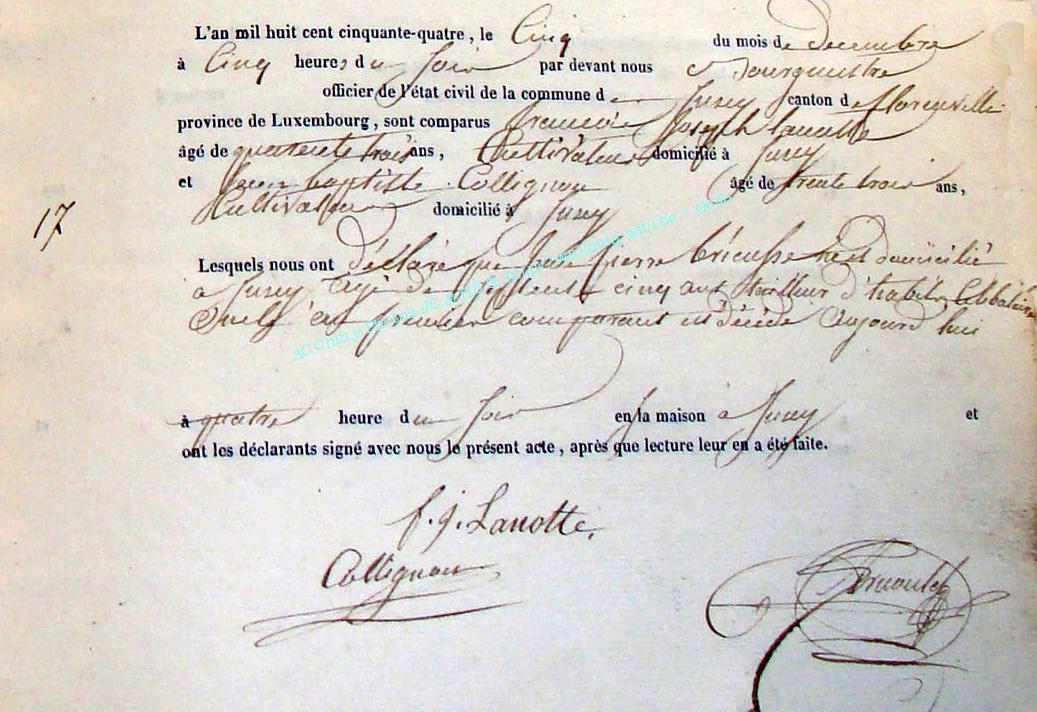 L'an mil huit cent cinquante-quatre, le Cinq du mois de decembre
à Cinq heures du Soir par devant nous Bourguestre
officier de l'état civil de la commune de Jusey canton de florenville
province de Luxembourg, sont comparus francois Joseph Lanotte
âgé de quarente trois ans, Cultivateur domicilié à Jusey
et Jean baptiste Collignon âgé de trente trois ans,
Cultivateur domicilié à Jusey
17
Lesquels nous ont déclaré que Jean pierre né et domicilié
a Jusey agé de cinq ans tailleur d'habits Célibataire
du premier comparant est décédé aujourd'hui
à quatre heure du Soir en la maison à Jusey et
ont les déclarants signé avec nous le présent acte, après que lecture leur en a été faite.
f. j. Lanotte
Collignon
AC Chiny